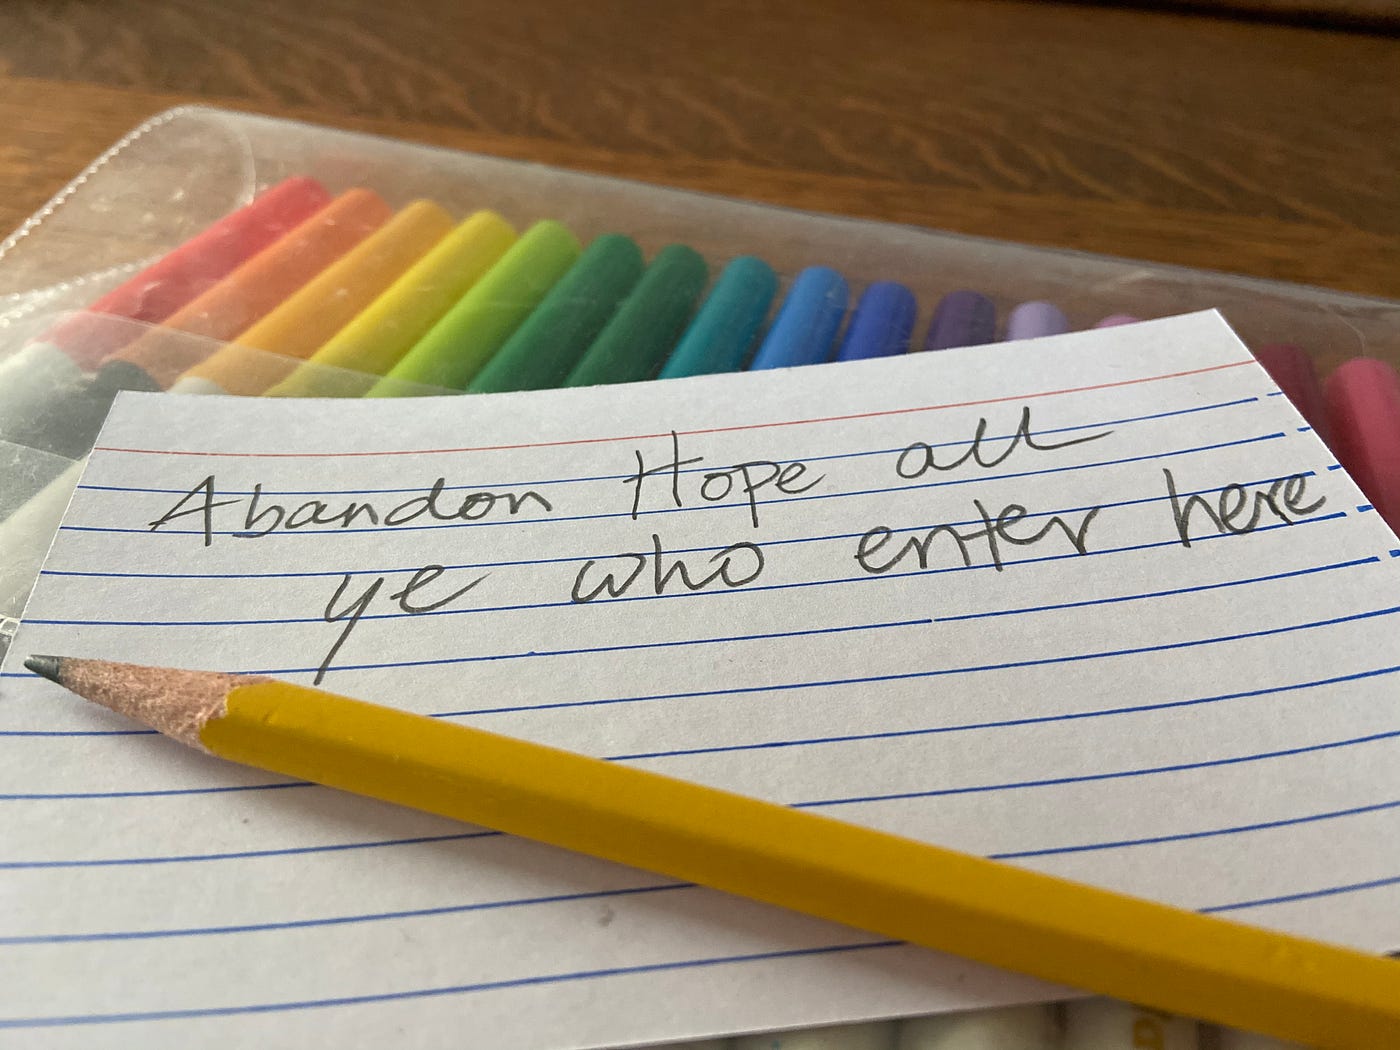 Abandon Hope all
ye who enter here